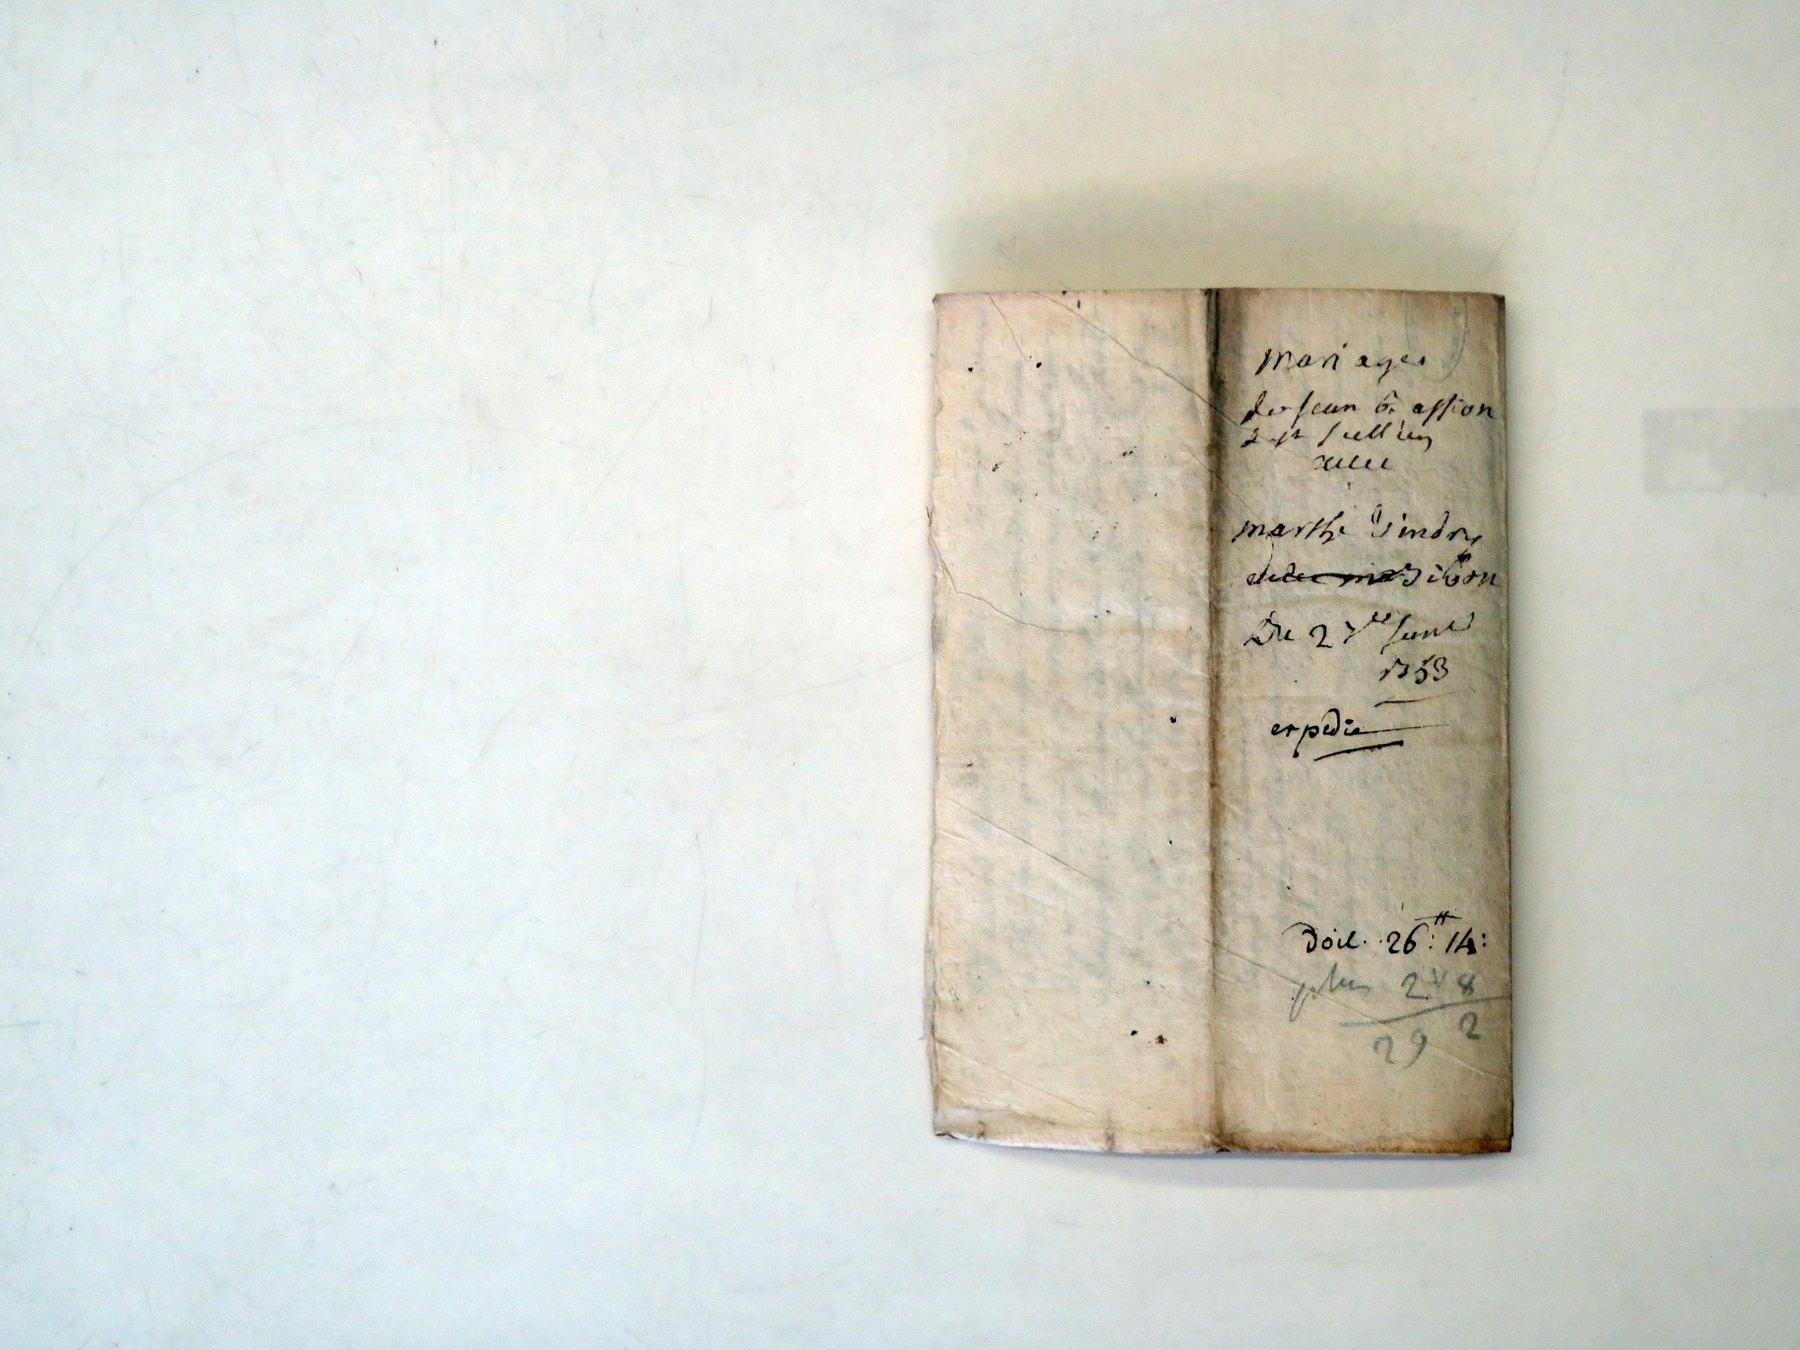 mariage
de jean Brassion
de st Jullien
avec
marthe Gindre
de Sibon
Du 27me Juin
1753
expedie
Doit 26ᴴ: 14:
plus 2 8
29 2